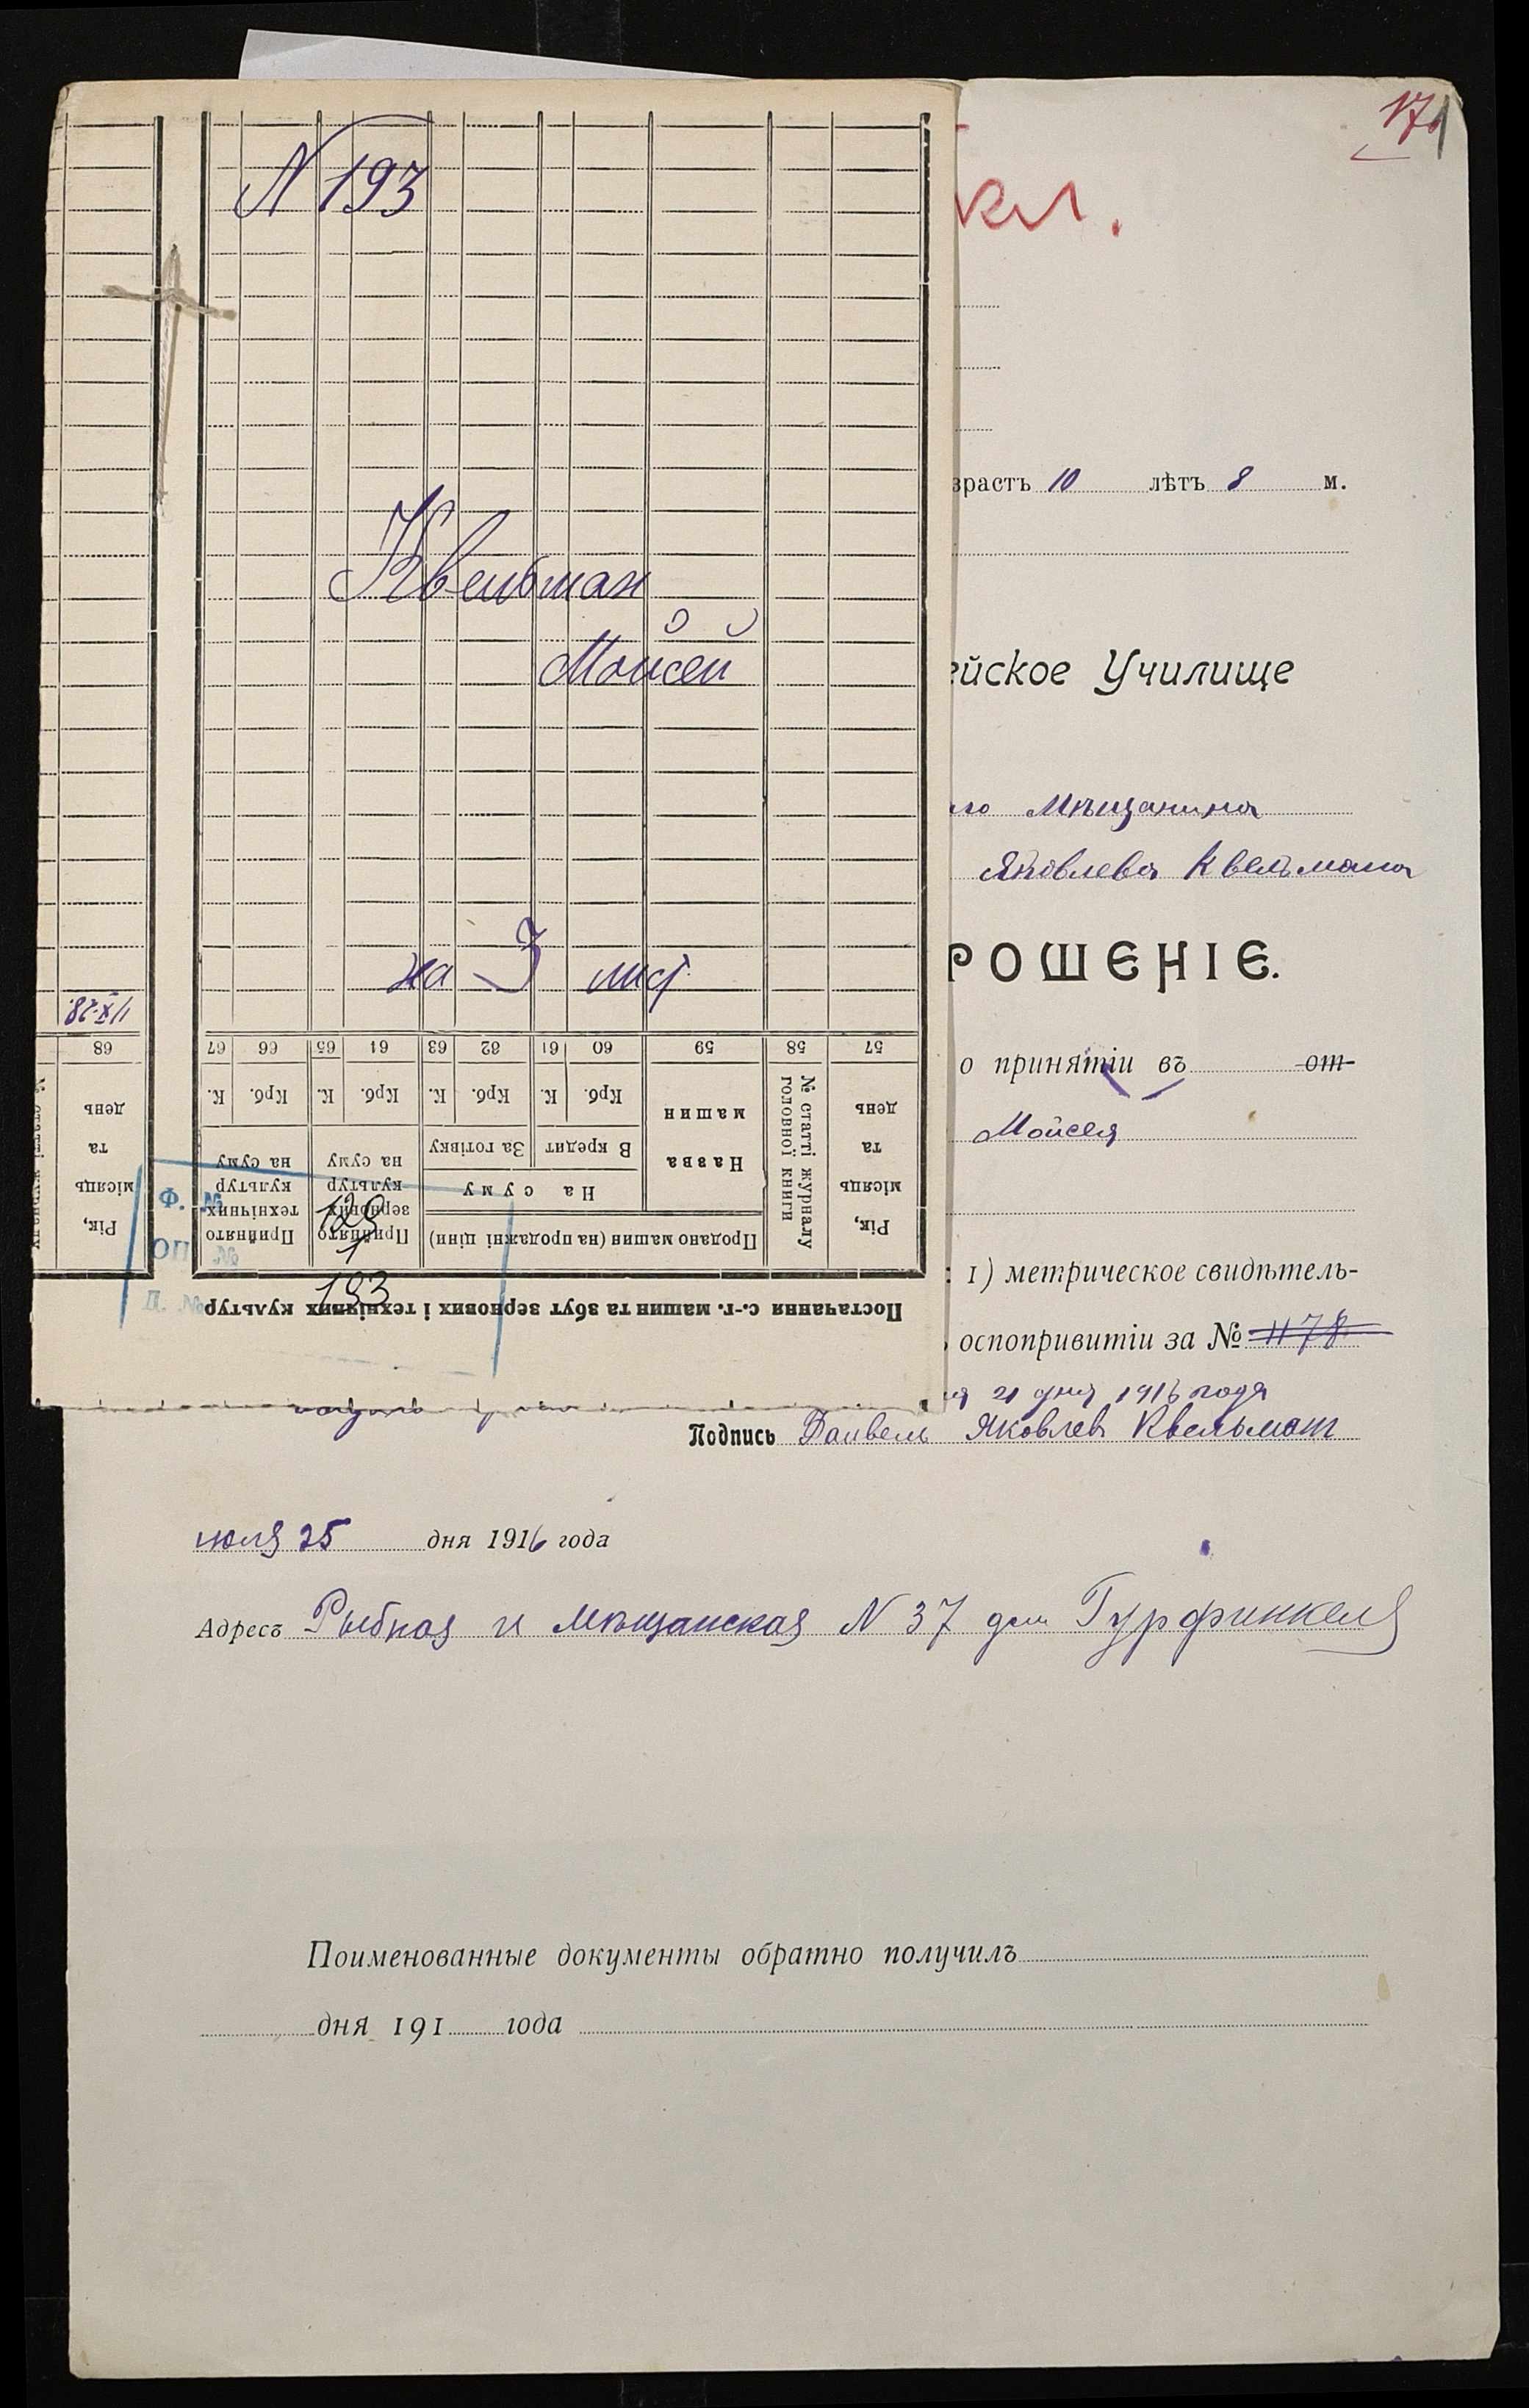 N 193
Квельман
Мойсей
на 3 лист
1/X-28.
68
67
66
65
64
63
62
61
60
59
58
57
К.
Крб.
К.
Крб.
К.
Крб.
К.
Крб.
Назва машин
№ статті журналу головної книги
Рік, місяць та день
Рік, місяць та день
В кредит
За готівку
На суму
Продано машин (на продажні ціни)
Прийнято зернових культур на суму
Прийнято технічних культур на суму
Постачання с.-г. машин та збут зернових і технічних культур
Ф. №
129
ОП №
1
П. №
193
171
кл.
зрастъ 10 лѣтъ 8 м.
ейское Училище
го Мѣщанина
Яковлева Квельмана
РОШЕНІЕ.
о принятіи въ от-
Мойсея
: 1) метрическое свидѣтель-
оспопривитіи за № 1178
21 дня 1916 года
Подпись Даивель Яковлевъ Квельман
июля 25 дня 1916 года
Адресъ Рыбная и Мѣщанская N 37 дом Гурфинкеля
Поименованные документы обратно получилъ
дня 191 года